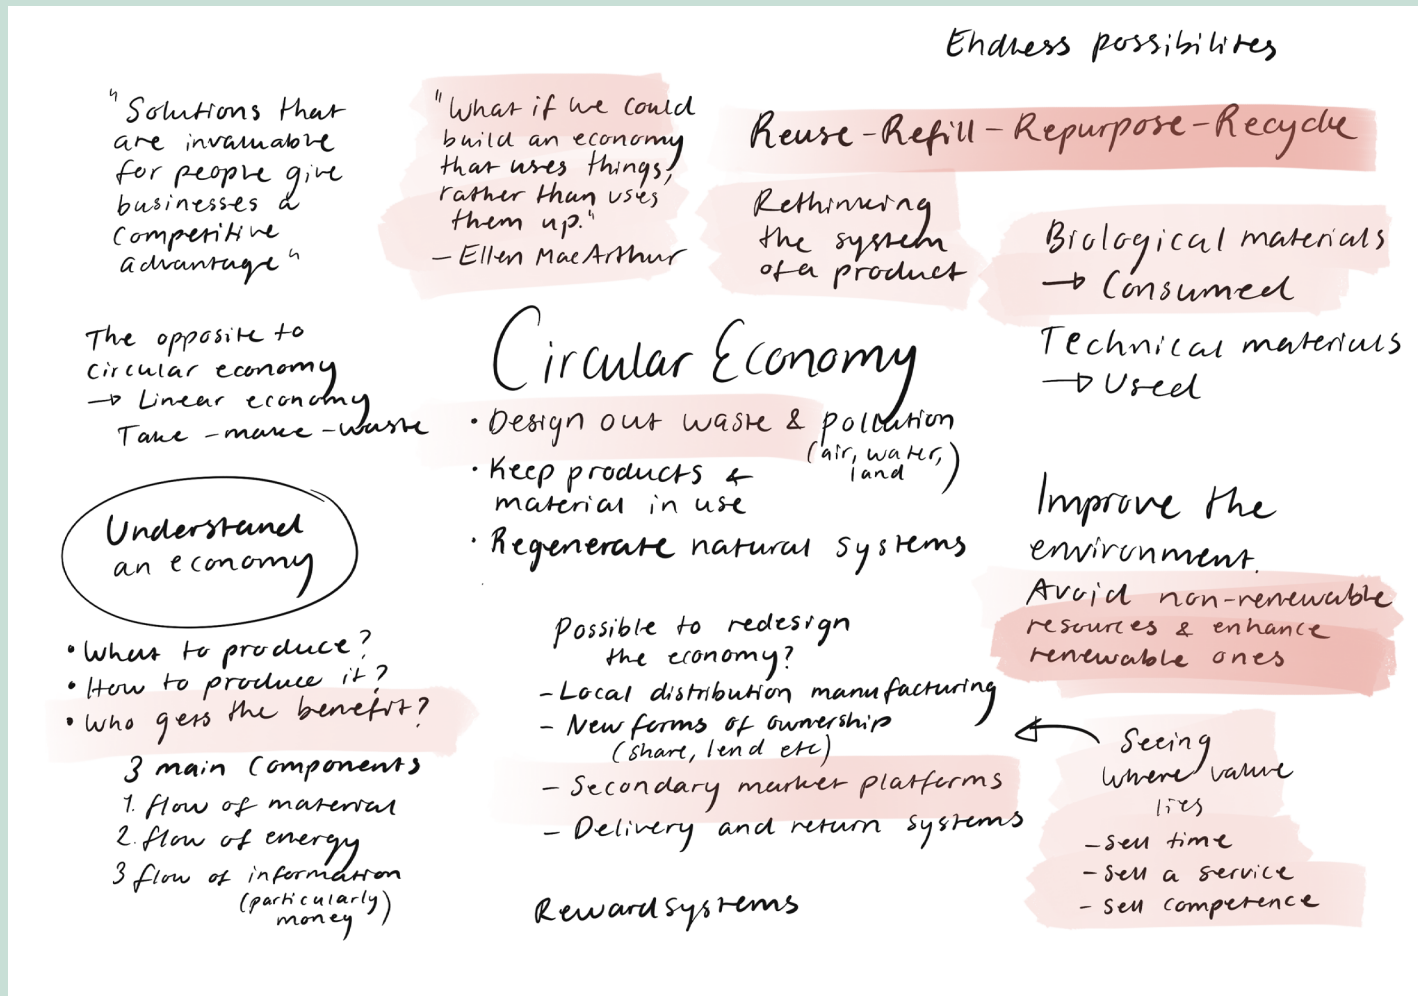 Endless possibilites
"Solutions that
are invaluable
for people give
businesses a
competitive
advantage"
"What if we could
build an economy
that uses things,
rather than uses
them up."
– Ellen MacArthur
Reuse – Refill – Repurpose – Recycle
Rethinking
the system
of a product
Biological materials
→ Consumed
Technical materials
→ Used
The opposite to
circular economy
→ Linear economy
Take – make – waste
Circular Economy
• Design out waste & pollution
(air, water,
land)
• Keep products &
material in use
• Regenerate natural systems
Understand
an economy
• What to produce?
• How to produce it?
• Who gets the benefit?
3 main components
1. flow of material
2. flow of energy
3 flow of information
(particularly
money)
Possible to redesign
the economy?
– Local distribution manufacturing
– New forms of ownership
(share, lend etc)
– Secondary market platforms
– Delivery and return systems
Reward systems
Improve the
environment.
Avoid non-renewable
resources & enhance
renewable ones
Seeing
where value
lies
– sell time
– sell a service
– sell competence